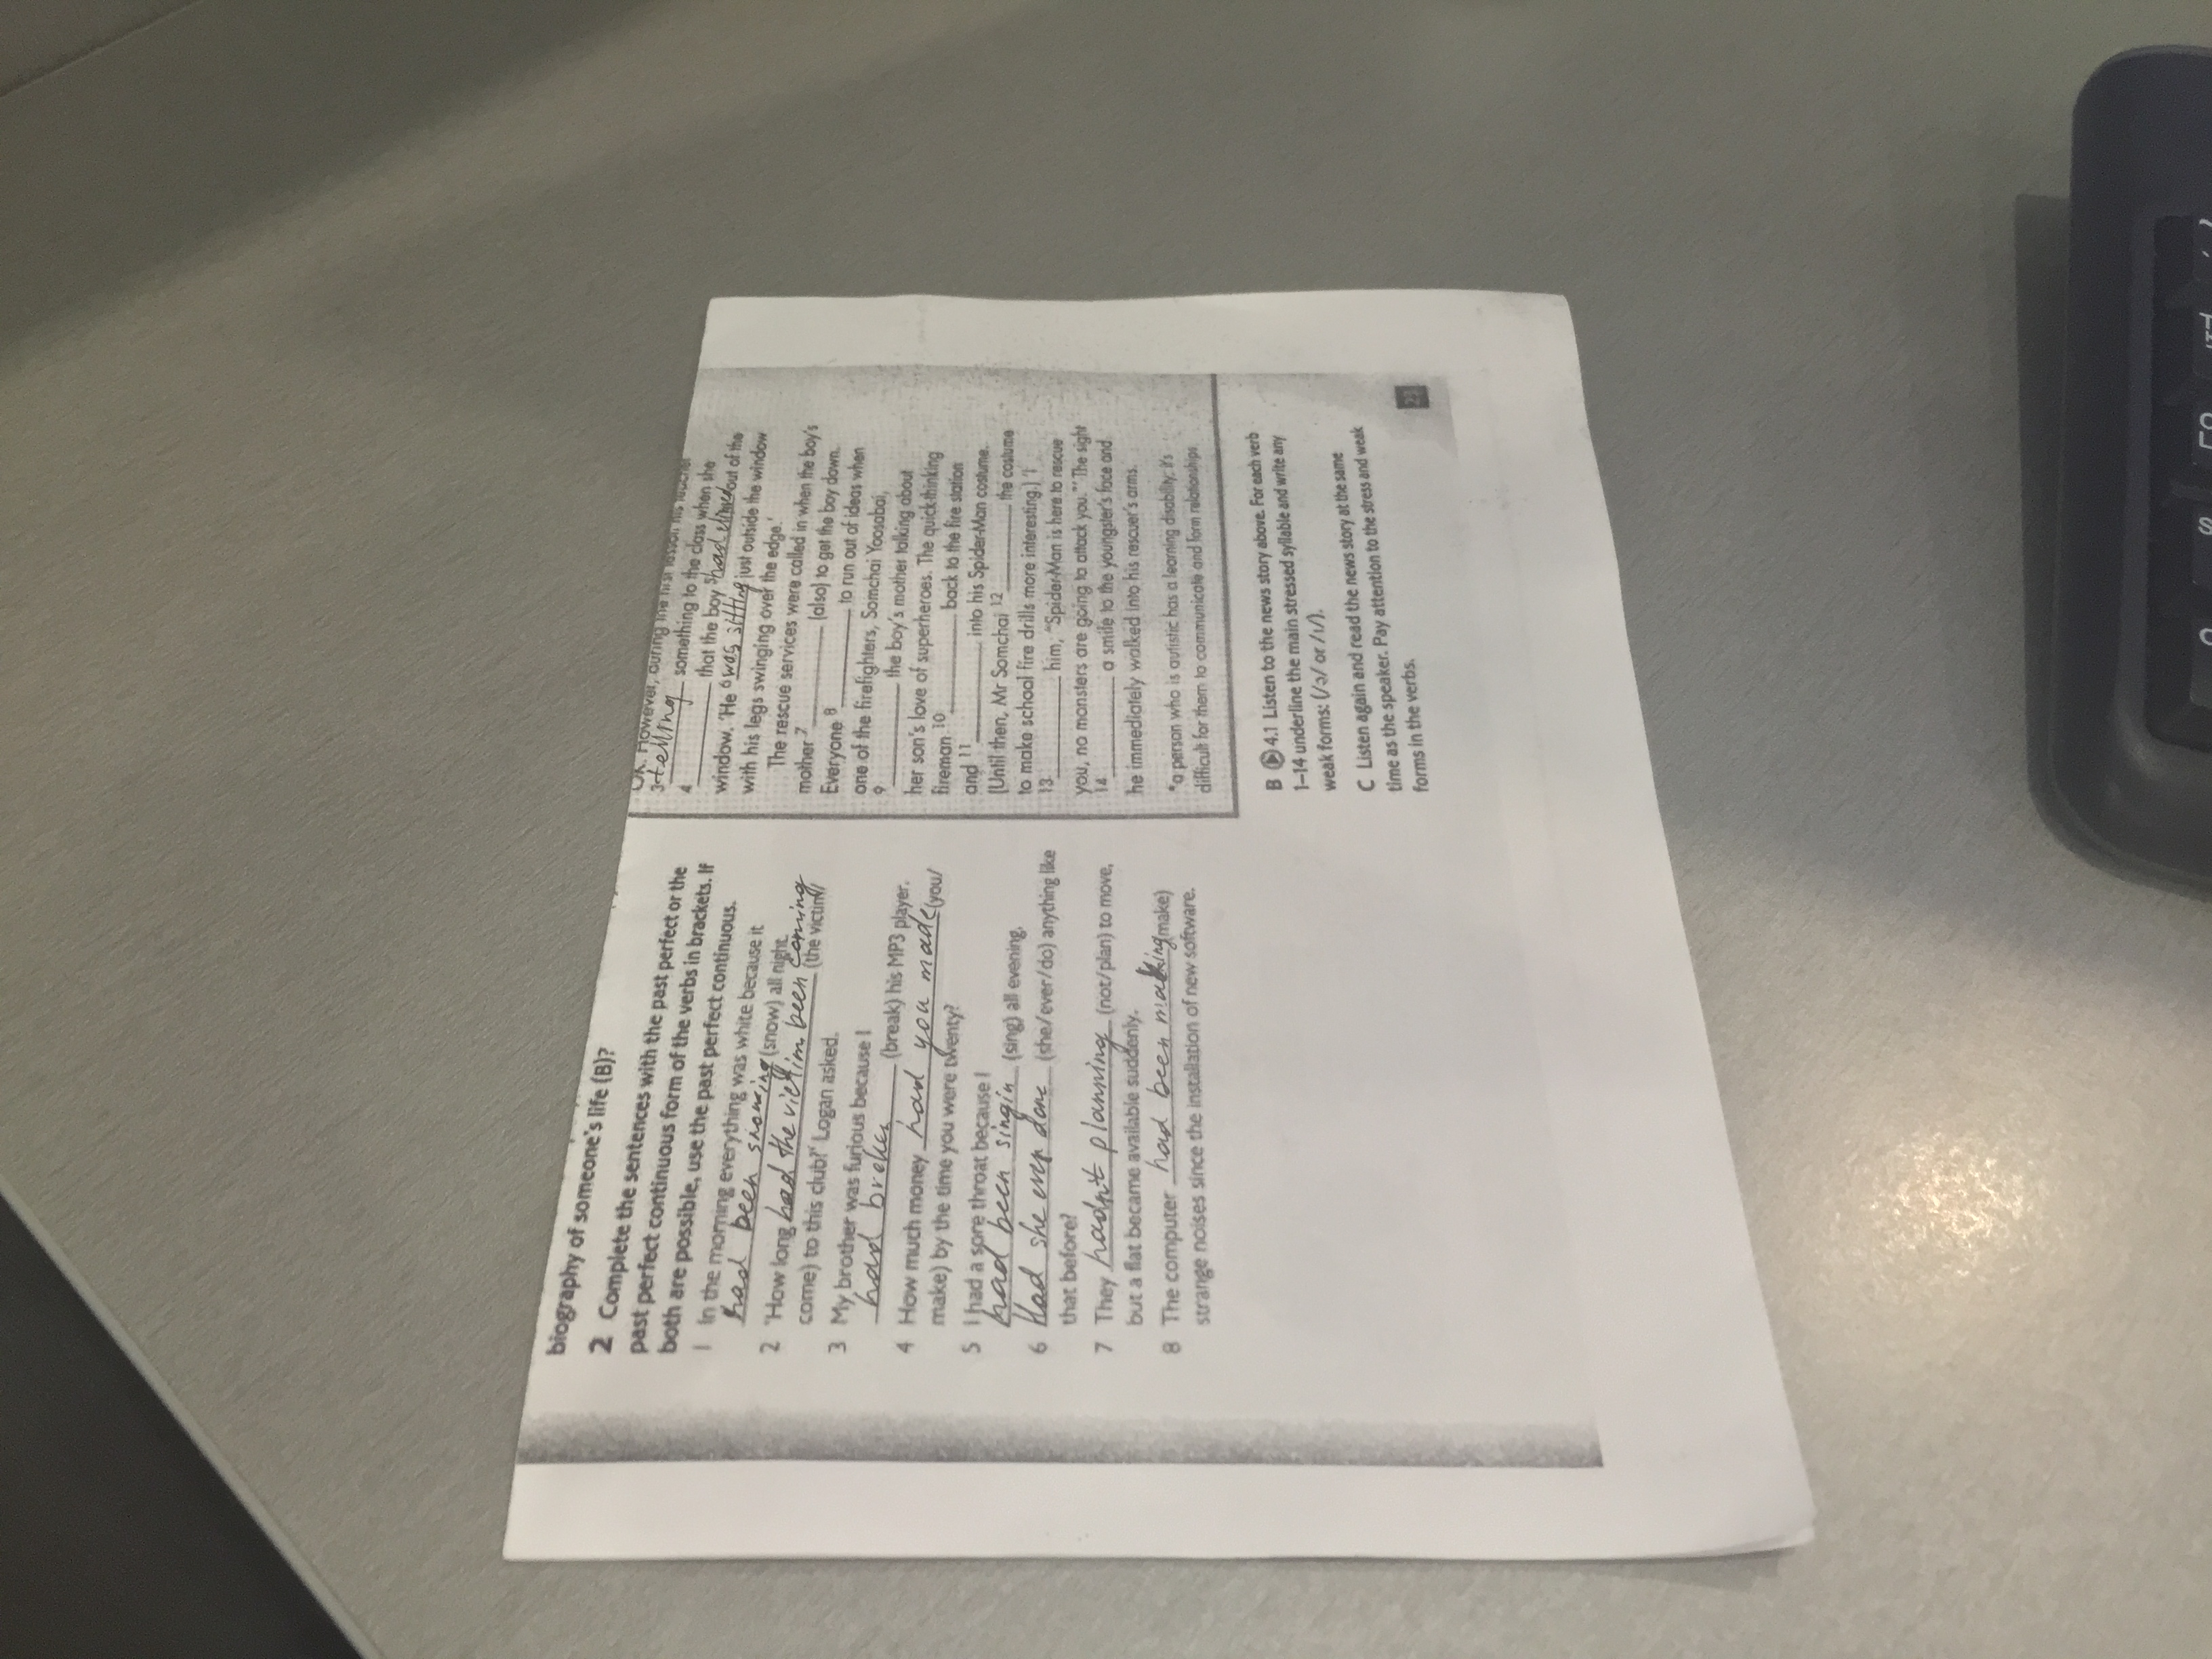 biography of someone's life (B)?
2 Complete the sentences with the past perfect or the
past perfect continuous form of the verbs in brackets. If
both are possible, use the past perfect continuous.
1 In the morning everything was white because it
had been snowing (snow) all night.
2 'How long had the victim been coming (the victim/
come) to this club?' Logan asked.
3 My brother was furious because I
had broken (break) his MP3 player.
4 How much money had you made (you/
make) by the time you were twenty?
5 I had a sore throat because I
had been singin (sing) all evening.
6 Had she ever done (she/ever/do) anything like
that before?
7 They hadn't planning (not/plan) to move,
but a flat became available suddenly.
8 The computer had been making make)
strange noises since the installation of new software.
OK. However, during the first lesson his teacher
3 telling something to the class when she
4 that the boy 5 had out of the
window. 'He 6 was sitting just outside the window
with his legs swinging over the edge.'
The rescue services were called in when the boy's
mother 7 (also) to get the boy down.
Everyone 8 to run out of ideas when
one of the firefighters, Somchai Yoosabai,
9 the boy's mother talking about
her son's love of superheroes. The quick-thinking
fireman 10 back to the fire station
and 11 into his Spider-Man costume.
(Until then, Mr Somchai 12 the costume
to make school fire drills more interesting.) 'I
13 him, "Spider-Man is here to rescue
you, no monsters are going to attack you."' The sight
14 a smile to the youngster's face and
he immediately walked into his rescuer's arms.
*a person who is autistic has a learning disability: it's
difficult for them to communicate and form relationships
B 4.1 Listen to the news story above. For each verb
1–14 underline the main stressed syllable and write any
weak forms: (/ə/ or /ɪ/).
C Listen again and read the news story at the same
time as the speaker. Pay attention to the stress and weak
forms in the verbs.
23